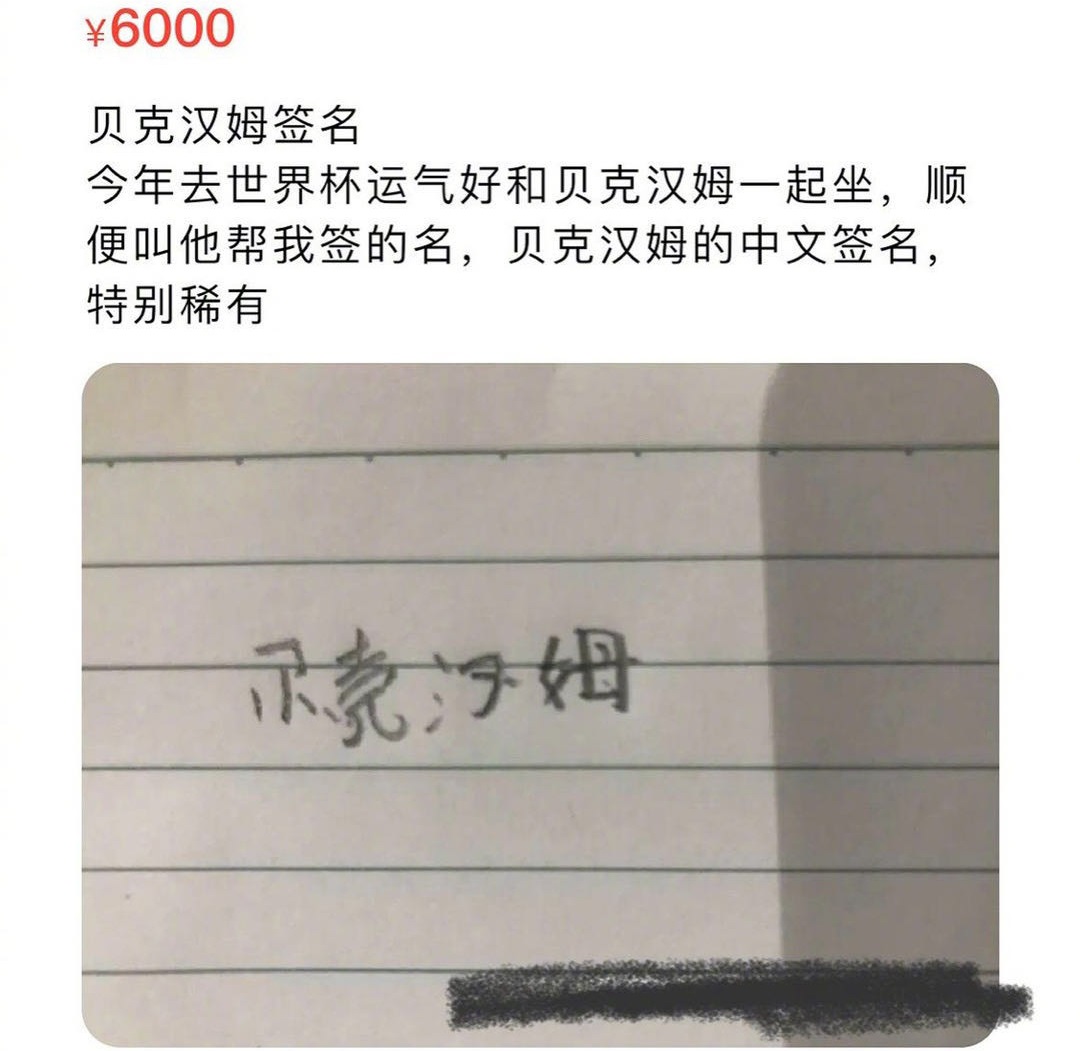 ¥6000
贝克汉姆签名
今年去世界杯运气好和贝克汉姆一起坐，顺
便叫他帮我签的名，贝克汉姆的中文签名，
特别稀有
贝克汉姆